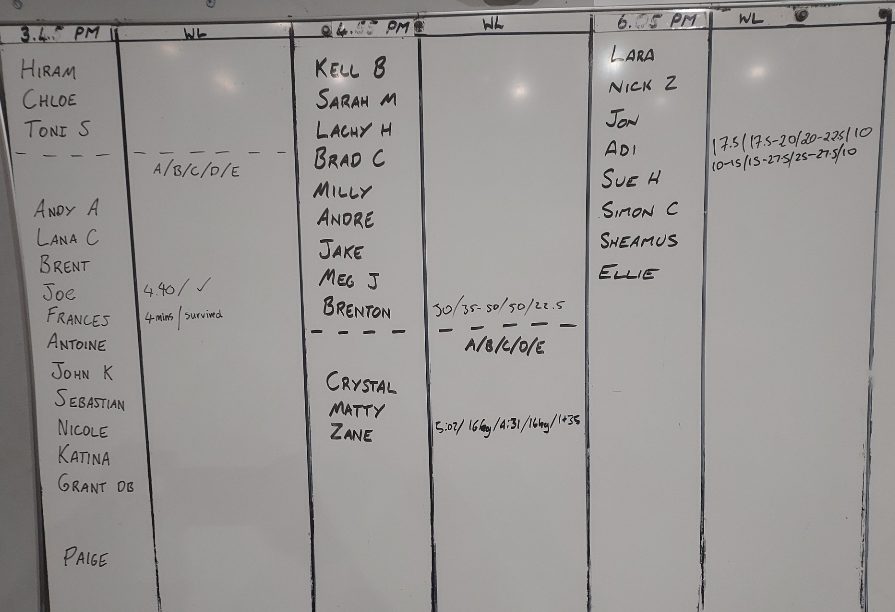 3.45 PM WL
HIRAM
CHLOE
TONI S
A/B/C/D/E
ANDY A
LANA C
BRENT
JOE 4.40/ ✓
FRANCES 4mins/survived
ANTOINE
JOHN K
SEBASTIAN
NICOLE
KATINA
GRANT DB
PAIGE
4.55 PM WL
KELL B
SARAH M
LACHY H
BRAD C
MILLY
ANDRE
JAKE
MEG J
BRENTON 50/35-50/50/22.5
A/B/C/D/E
CRYSTAL
MATTY
ZANE 5:02/16kg/4:31/16kg/1+35
6.05 PM WL
LARA
NICK Z
JON
ADI 17.5/17.5-20/20-22.5/10
10-15/15-27.5/25-27.5/10
SUE H
SIMON C
SHEAMUS
ELLIE